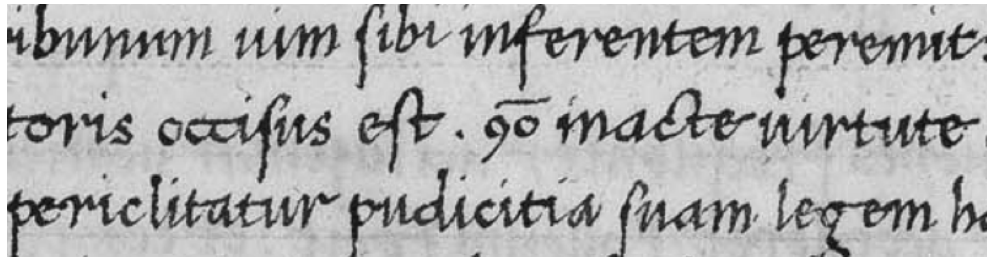 ibunum uim sibi inferentem peremit:
toris occisus est. ꝯō macte uirtute.
periclitatur pudicitia suam legem ha